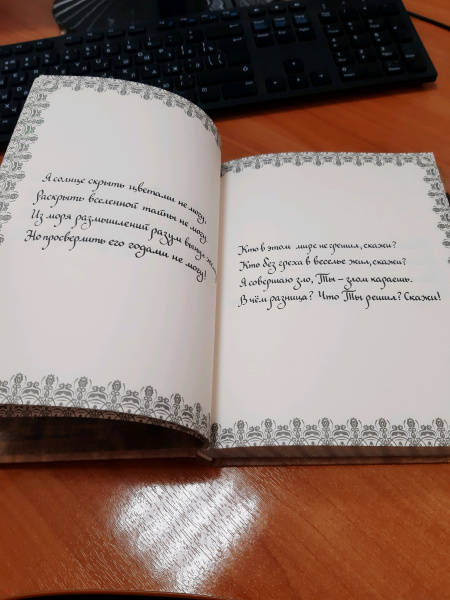 Я солнце скрыть цветами не могу,
Раскрыть вселенной тайны не могу.
Из моря размышлений разум
Но просверлить его годами не могу!
Кто в этом мире не грешил, скажи?
Кто без греха в веселье жил, скажи?
Я совершаю зло, Ты – злом караешь.
В чём разница? Что Ты решил? Скажи!